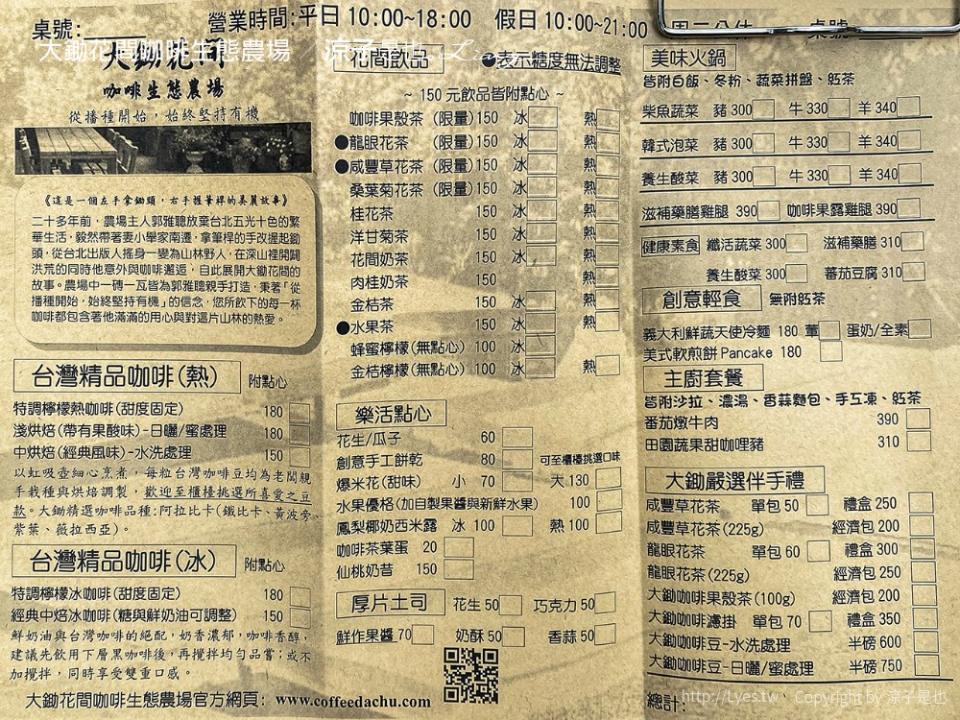 桌號:
營業時間:平日 10:00~18:00 假日 10:00~21:00
桌號
大鋤花間咖啡生態農場 涼子是也
大鋤花間
咖啡生態農場
從播種開始，始終堅持有機
《這是一個左手拿鋤頭，右手握筆桿的美麗故事》
二十多年前，農場主人郭雅聰放棄台北五光十色的繁
華生活，毅然帶著妻小學家南遷，拿筆桿的手改握起鋤
頭，從台北出版人搖身一變為山林野人，在深山裡開闢
洪荒的同時他意外與咖啡邂逅，自此展開大鋤花間的
故事。農場中一磚一瓦皆為郭雅聰親手打造，秉著「從
播種開始，始終堅持有機」的信念，您所飲下的每一杯
咖啡都包含著他滿滿的用心與對這片山林的熱愛。
台灣精品咖啡(熱) 附點心
特調檸檬熱咖啡(甜度固定) 180
淺烘焙(帶有果酸味)-日曬/蜜處理 180
中烘焙(經典風味)-水洗處理 150
以虹吸壺細心烹煮，每粒台灣咖啡豆均為老闆親
手栽種與烘焙調製，歡迎至櫃檯挑選所喜愛之豆
款。大鋤精選咖啡品種:阿拉比卡(鐵比卡、黃波旁、
紫葉、薇拉西亞)。
台灣精品咖啡(冰) 附點心
特調檸檬冰咖啡(甜度固定) 180
經典中焙冰咖啡(糖與鮮奶油可調整) 150
鮮奶油與台灣咖啡的絕配，奶香濃郁，咖啡香醇，
建議先飲用下層黑咖啡後，再攪拌均勻品嘗；或不
加攪拌，同時享受雙重口感。
大鋤花間咖啡生態農場官方網頁： www.coffeedachu.com
花間飲品 ●表示糖度無法調整
~ 150 元飲品皆附點心 ~
咖啡果殼茶 (限量) 150 冰 熱
●龍眼花茶 (限量) 150 冰 熱
●咸豐草花茶 (限量) 150 冰 熱
桑葉菊花茶 (限量) 150 冰 熱
桂花茶 150 冰 熱
洋甘菊茶 150 冰 熱
花間奶茶 150 冰 熱
肉桂奶茶 150 冰 熱
金桔茶 150 冰 熱
●水果茶 150 冰 熱
蜂蜜檸檬(無點心) 100 冰
金桔檸檬(無點心) 100 冰 熱
樂活點心
花生/瓜子 60
創意手工餅乾 80 可至櫃檯挑選口味
爆米花(甜味) 小 70 大 130
水果優格(加自製果醬與新鮮水果) 100
鳳梨椰奶西米露 冰 100 熱 100
咖啡茶葉蛋 20
仙桃奶昔 150
厚片土司 花生 50 巧克力 50
鮮作果醬 70 奶酥 50 香蒜 50
美味火鍋
皆附白飯、冬粉、蔬菜拼盤、紅茶
柴魚蔬菜 豬 300 牛 330 羊 340
韓式泡菜 豬 300 牛 330 羊 340
養生酸菜 豬 300 牛 330 羊 340
滋補藥膳雞腿 390 咖啡果露雞腿 390
健康素食 纖活蔬菜 300 滋補藥膳 310
養生酸菜 300 蕃茄豆腐 310
創意輕食 無附紅茶
義大利鮮蔬天使冷麵 180 葷 蛋奶/全素
美式軟煎餅 Pancake 180
主廚套餐
皆附沙拉、濃湯、香蒜麵包、手工凍、紅茶
番茄燉牛肉 390
田園蔬果甜咖哩豬 310
大鋤嚴選伴手禮
咸豐草花茶 單包 50 禮盒 250
咸豐草花茶(225g) 經濟包 200
龍眼花茶 單包 60 禮盒 300
龍眼花茶(225g) 經濟包 250
大鋤咖啡果殼茶(100g) 經濟包 200
大鋤咖啡濾掛 單包 70 禮盒 350
大鋤咖啡豆-水洗處理 半磅 600
大鋤咖啡豆-日曬/蜜處理 半磅 750
總計:
http://Lyes.tw Copyright by 涼子是也